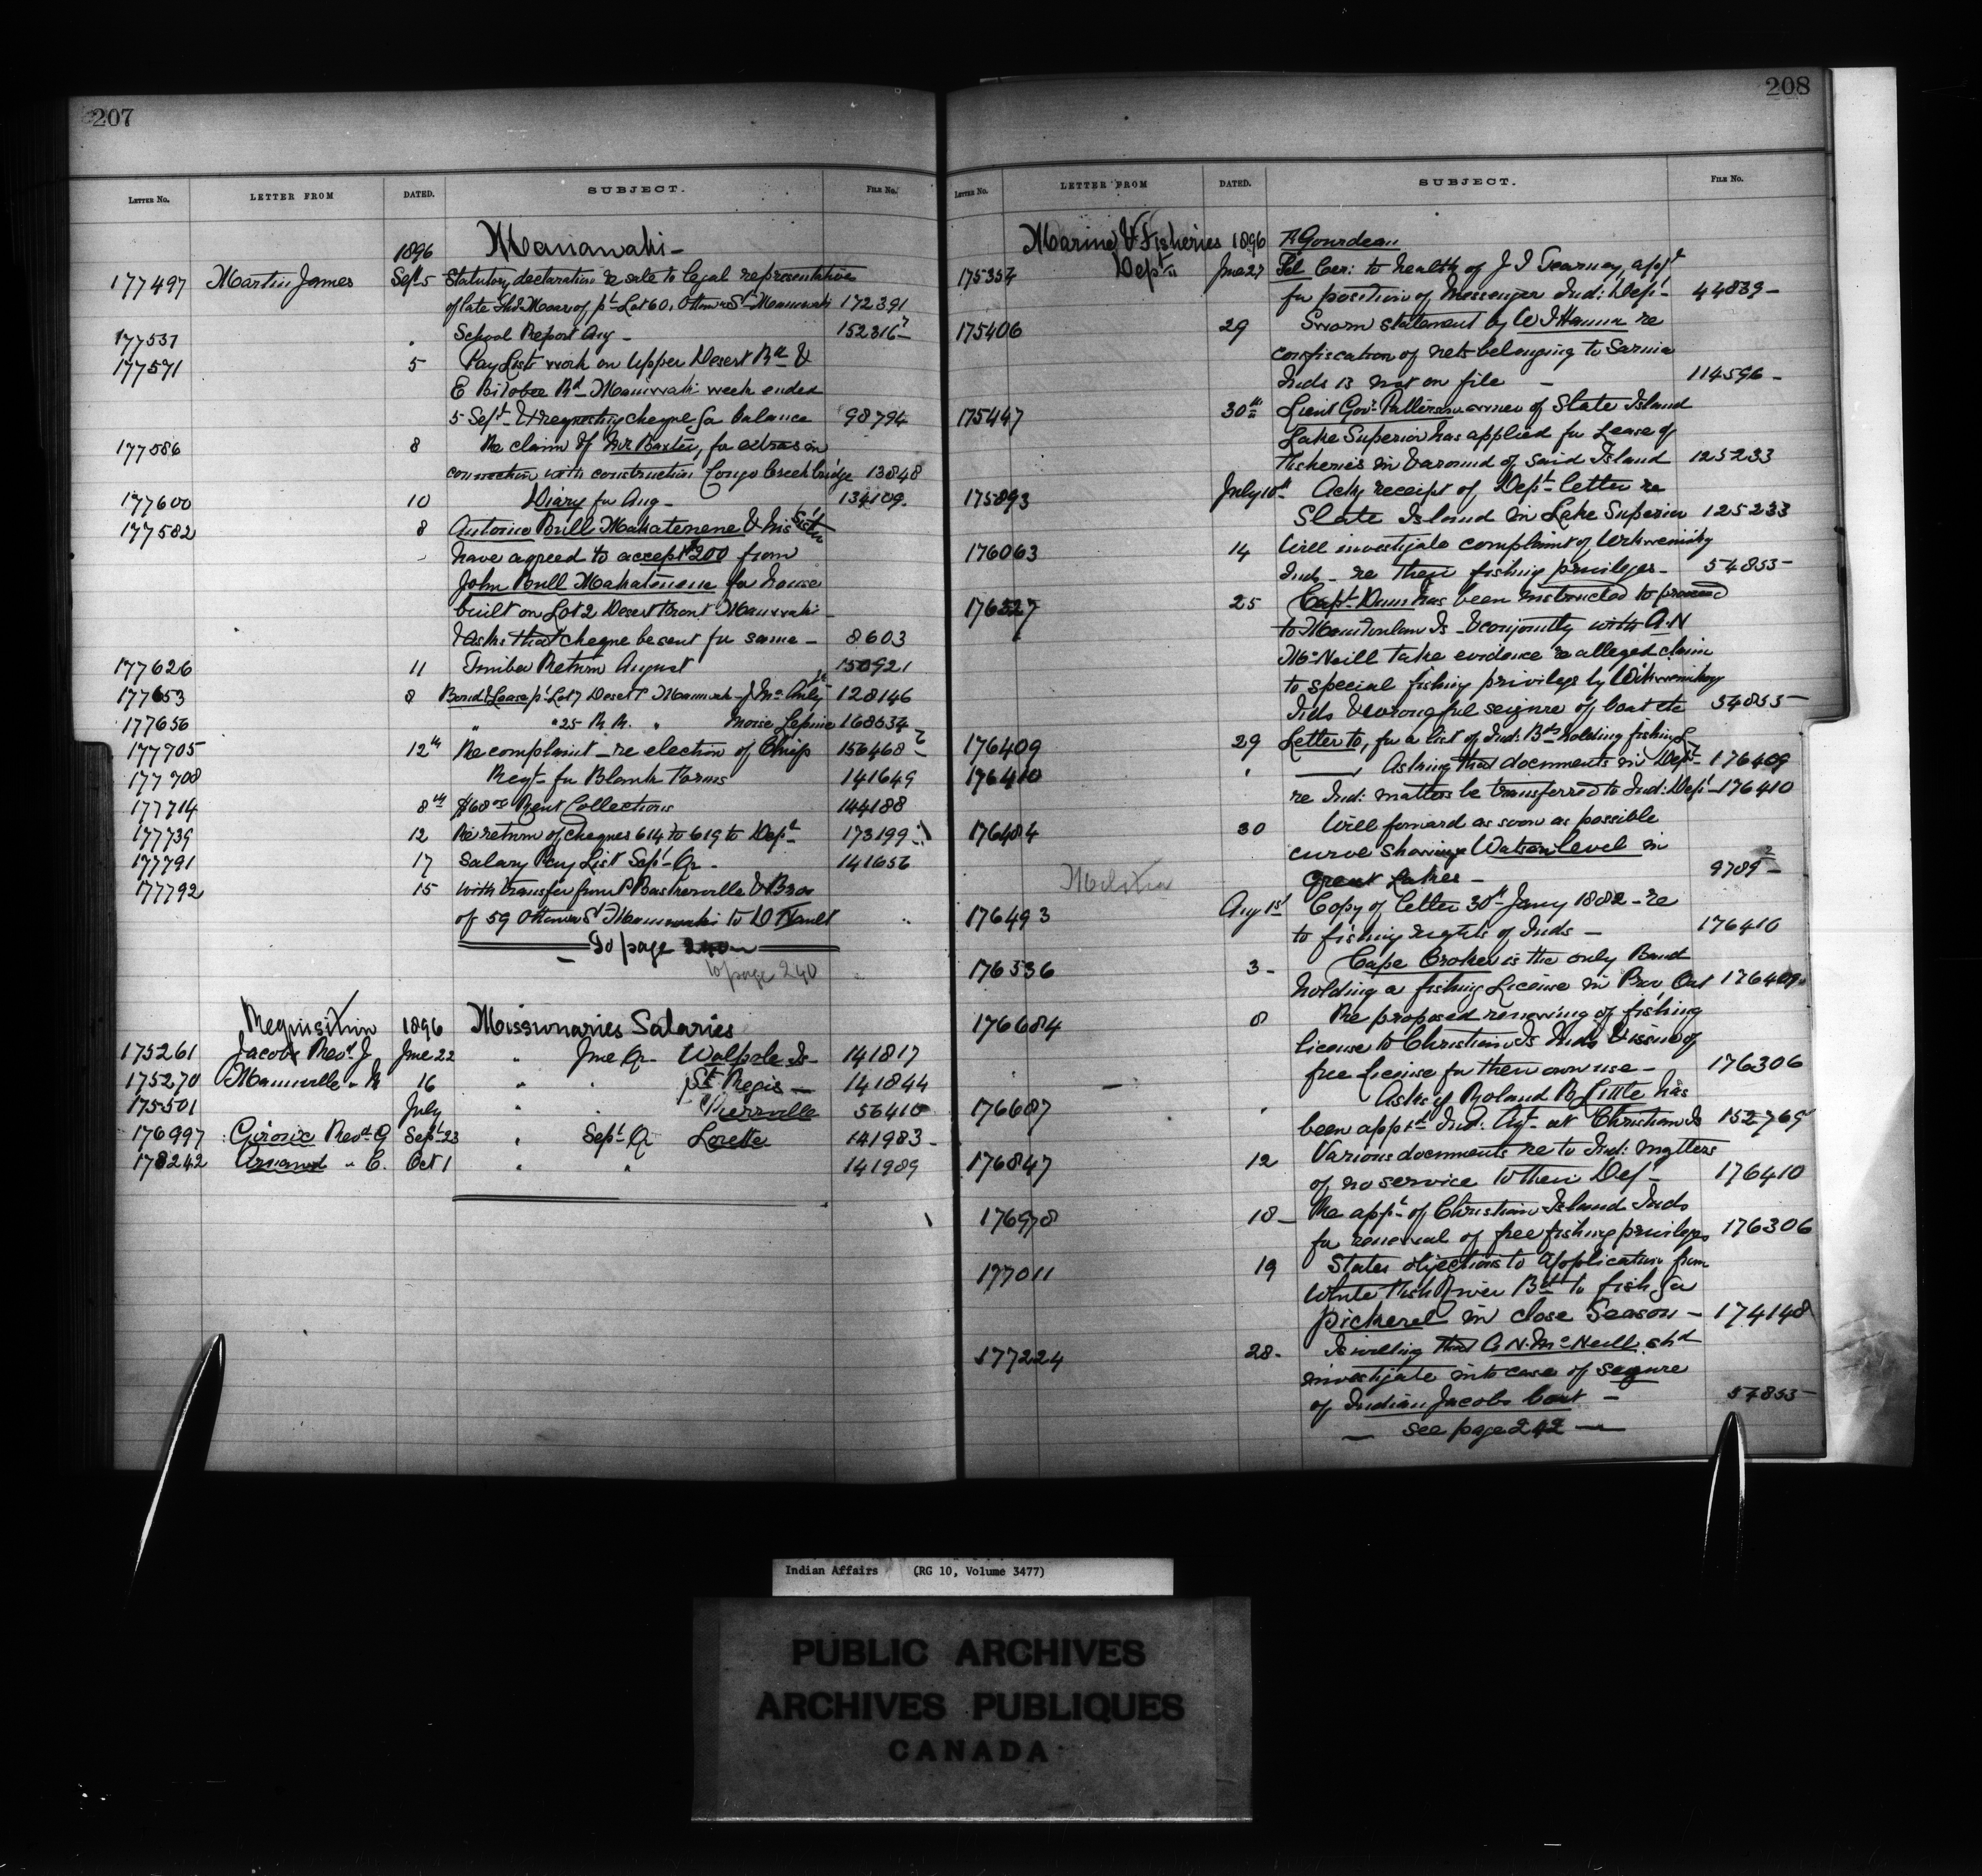 207
LETTER NO. LETTER FROM DATED. SUBJECT. FILE NO.
1896 Maniwaki -
177497 Martin James Sept 5 Statutory declaration re sale to legal representative
of late Moar of pt Lot 60, Ottawa St Maniwaki 172391
177531 " School Report Aug - 152316
177571 5 Pay Lists work on Upper Desert Rd &
E Bitobee Rd Maniwaki week ended
5 Sept & requesting cheque for balance 98794
177586 8 Re claim of Mr Baxter, for extras in
connection with construction Congo Creek bridge 13848
177600 10 Diary for Aug - 134109
177582 8 Antoine Bull Makatenene & his Sister
have agreed to accept $200 from
John Bull Makatenene for house
built on Lot 2 Desert Front Maniwaki
& asks that cheque be sent for same - 8603
177626 11 Timber Return August 150921
177653 8 Bond & Lease pt Lot 7 Desert St Maniwaki - J Mc 128146
177656 " " 25 R. R. " Moise Lepine 168634
177705 12th Re complaint re election of Chief 156468
177708 Reqt for Blank Forms 141649
177714 8th $68 Rent Collections 144188
177739 12 Re return of cheques 614 to 619 to Dept 173199
177791 17 Salary Pay List Sept Qr - 141656
177792 15 With transfer from P Baskerville & Bros
of 59 Ottawa St Maniwaki to D
To page 240
to page 240
Requisition 1896 Missionaries Salaries
175261 Jacobs Revd J June 22 " June Qr Walpole Is - 141817
175270 Mainville " R 16 " " St Regis - 141844
175501 July " " Pierreville 56410
176997 Giroux Revd G Sept 23 " Sept Qr Lorette 141983 -
178242 Arnaud " C. Oct 1 " " 141989
208
LETTER NO. LETTER FROM DATED. SUBJECT. FILE NO.
Marine & Fisheries 1896 F Gourdeau
175354 Dept June 27 Cer: to health of J J Kearney, appt
for position of Messenger Ind: Dep - 44839 -
175406 29 Sworn statement by W J Hanna re
confiscation of nets belonging to Sarnia
Inds is not on file - 114596 -
175447 30th Lieut Govr Patterson owner of Slate Island
Lake Superior has applied for Lease of
Fisheries in & around of said Island 125233
175893 July 10th Ackg receipt of Dept letter re
Slate Island in Lake Superior 125233
176063 14 Will investigate complaint of Wikwemikong
Inds - re their fishing privileges - 54855 -
176327 25 Capt Dunn has been instructed to proceed
to Manitoulin Is - & conjointly with A.N
McNeill take evidence re alleged claim
to special fishing privilege by Wikwemikong
Inds & wrongful seizure of boat etc 54855 -
176409 29 Letter to, for a list of Ind: Bds holding fishing L 176409
176410 " Asking that documents in Dept
re Ind: matters be transferred to Ind: Dept - 176410
176484 30 Will forward as soon as possible
curve showing Water level in
Great Lakes - 9789
Militia
176493 Aug 1st Copy of letter 30th Jany 1882 - re
to fishing rights of Inds - 176410
176536 3 - Cape Croker is the only Band
holding a fishing License in Prov Ont 176409
176684 8 Re proposed renewing of fishing
license to Christian Is Inds & issue of
free License for their own use - 176306
176687 " Asks if Roland B Little has
been apptd Ind: Agt at Christian Is 152769
176847 12 Various documents re to Ind: matters
of no service to their Dep - 176410
176978 18 - Re appn of Christian Island Inds
for renewal of free fishing privileges 176306
177011 19 States objections to application from
White Fish River Bd to fish for
pickerel in close Season - 174148
177224 28 - Is willing that A N McNeill shd
investigate into case of seizure
of Indian Jacobs boat - 54855 -
- see page 242 -
Indian Affairs (RG 10, Volume 3477)
PUBLIC ARCHIVES
ARCHIVES PUBLIQUES
CANADA